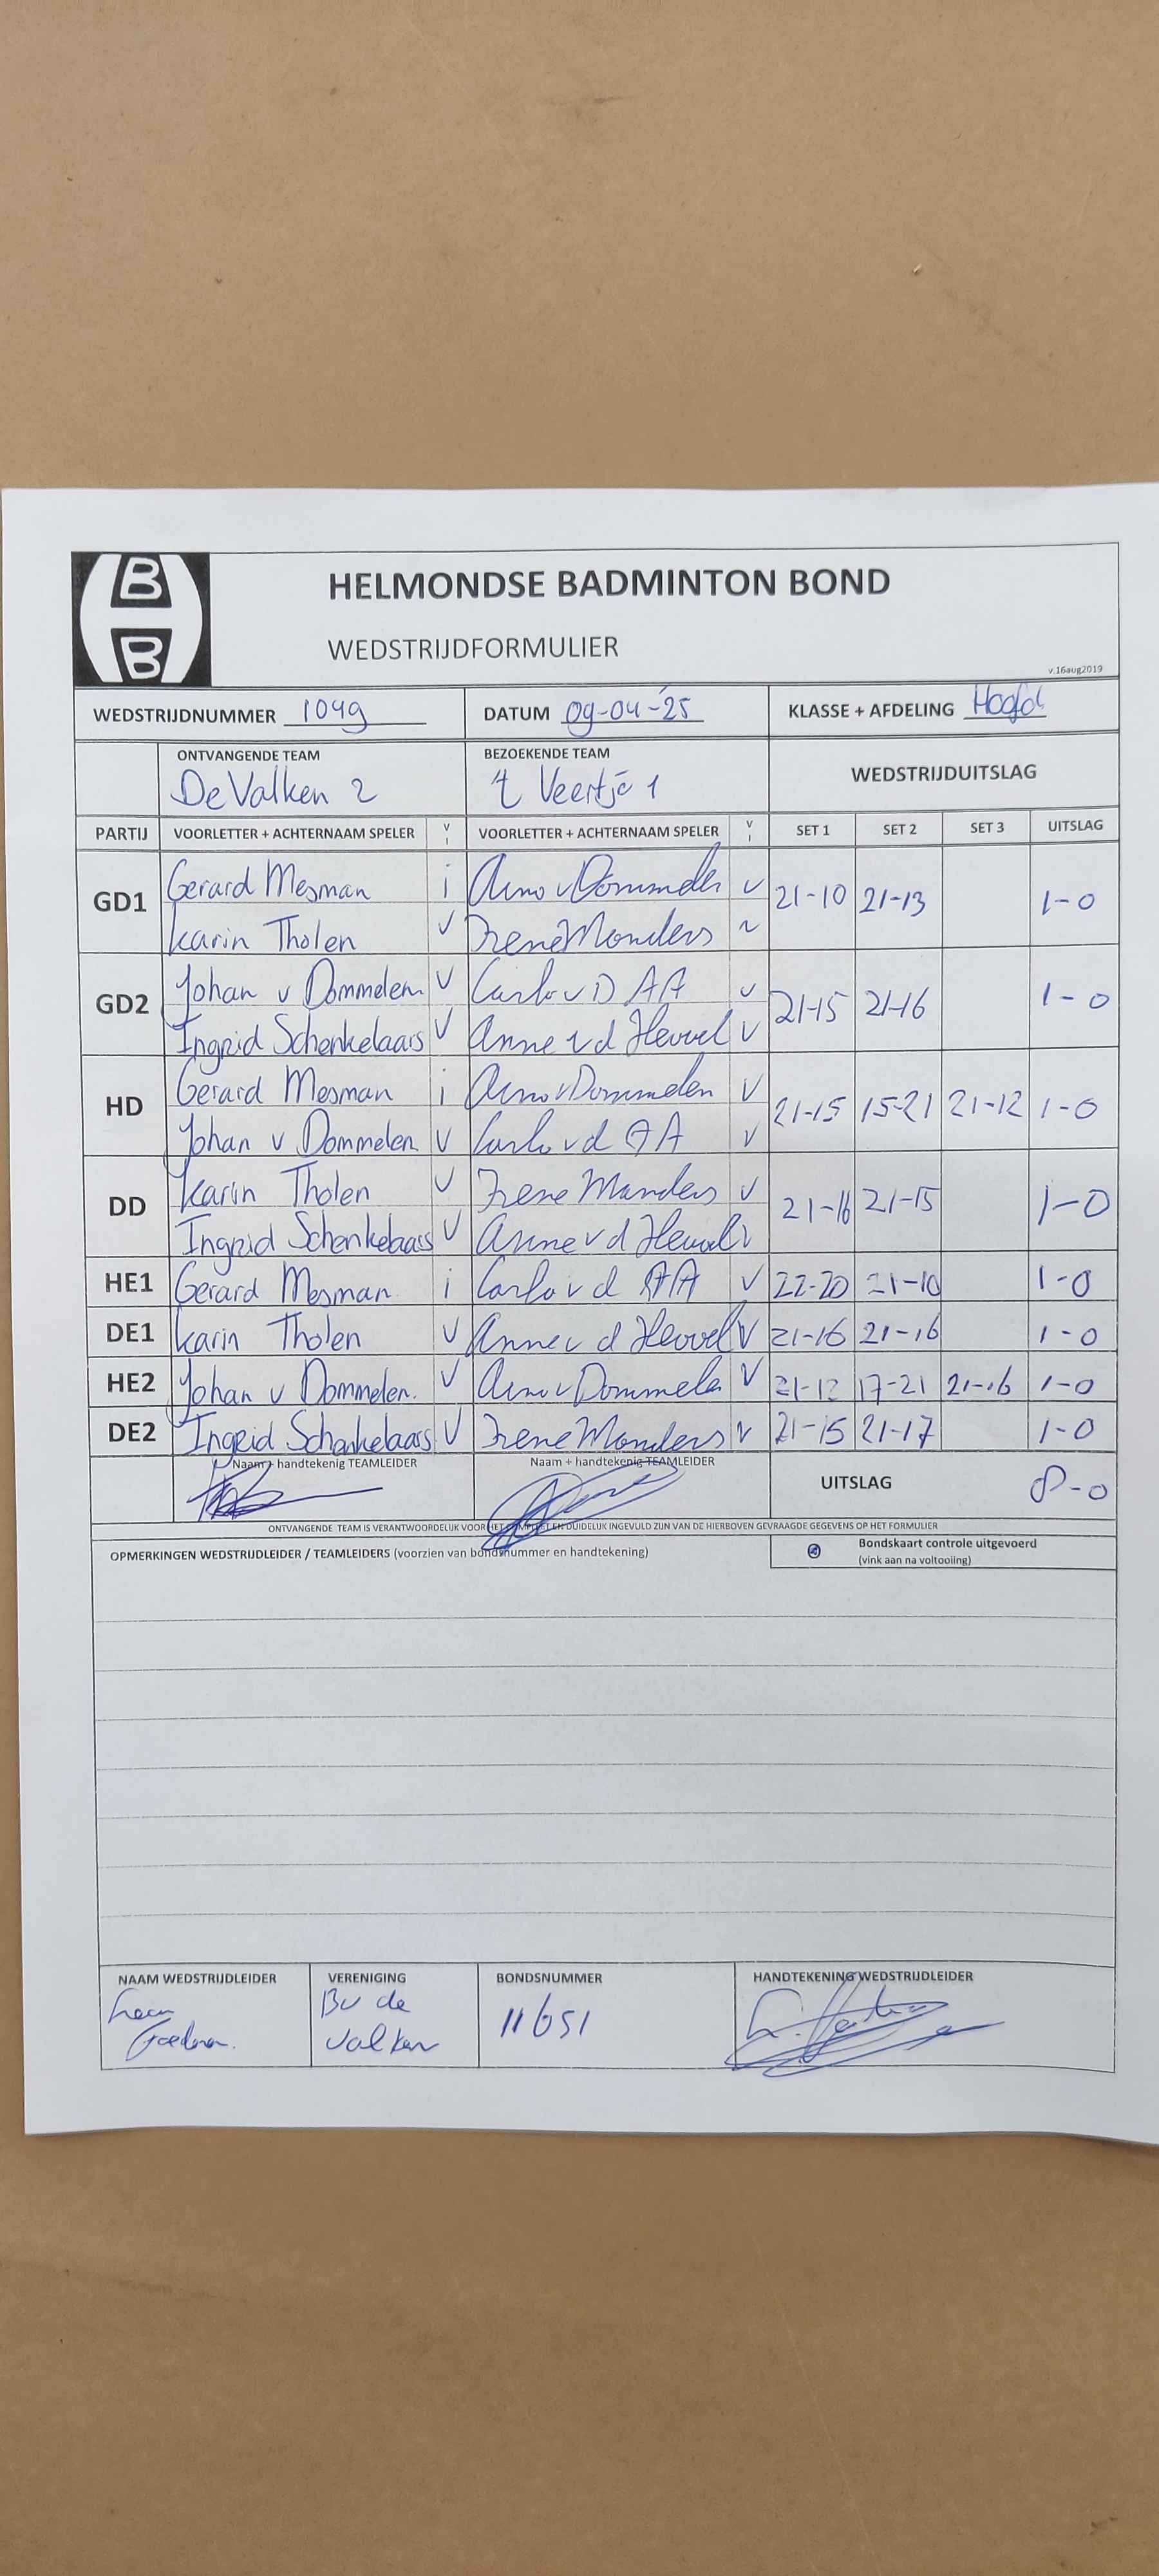 B
B
HELMONDSE BADMINTON BOND
WEDSTRIJDFORMULIER
v.16aug2019
WEDSTRIJDNUMMER 1049 DATUM 09-04-'25 KLASSE + AFDELING Hoofd
ONTVANGENDE TEAM BEZOEKENDE TEAM WEDSTRIJDUITSLAG
De Valken 2 't Veertje 1
PARTIJ VOORLETTER + ACHTERNAAM SPELER V I VOORLETTER + ACHTERNAAM SPELER V I SET 1 SET 2 SET 3 UITSLAG
GD1 Gerard Mesman i Arno v Dommelen v 21-10 21-13 1-0
Karin Tholen v Irene Manders v
GD2 Johan v Dommelen v Carlo v D AA v 21-15 21-16 1-0
Ingrid Schenkelaars v Anne v d Heuvel v
HD Gerard Mesman i Arno v Dommelen v 21-15 15-21 21-12 1-0
Johan v Dommelen v Carlo v d AA v
DD Karin Tholen v Irene Manders v 21-16 21-15 1-0
Ingrid Schenkelaars v Anne v d Heuvel v
HE1 Gerard Mesman i Carlo v d AA v 22-20 21-10 1-0
DE1 Karin Tholen v Anne v d Heuvel v 21-16 21-16 1-0
HE2 Johan v Dommelen v Arno v Dommelen v 21-12 17-21 21-16 1-0
DE2 Ingrid Schenkelaars v Irene Manders v 21-15 21-17 1-0
Naam + handtekenig TEAMLEIDER Naam + handtekenig TEAMLEIDER UITSLAG 8-0
ONTVANGENDE TEAM IS VERANTWOORDELIJK VOOR HET EN DUIDELIJK INGEVULD ZIJN VAN DE HIERBOVEN GEVRAAGDE GEGEVENS OP HET FORMULIER
OPMERKINGEN WEDSTRIJDLEIDER / TEAMLEIDERS (voorzien van bondsnummer en handtekening) Bondskaart controle uitgevoerd
(vink aan na voltooiing)
NAAM WEDSTRIJDLEIDER VERENIGING BONDSNUMMER HANDTEKENING WEDSTRIJDLEIDER
BV de 11651
Valken